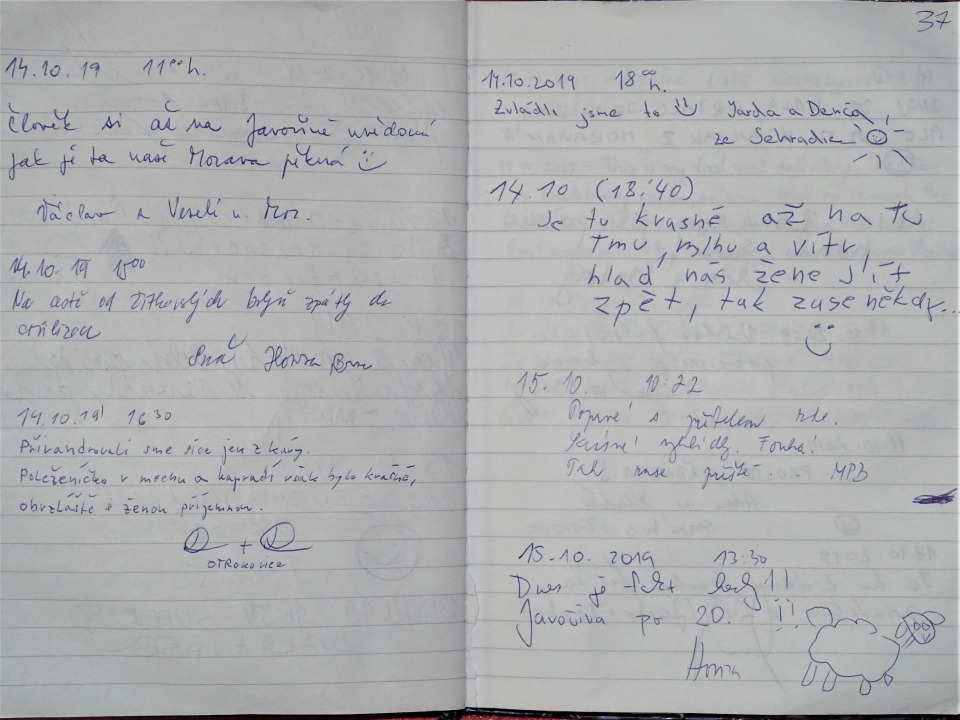 14.10.19 11⁰⁰ h.
Člověk si až na Javořině uvědomí
jak je ta naše Morava pěkná
Václav z Veselí n. Mor.
14.10.19 15⁰⁰
Na cestě od Žítkovských bohyň zpátky do
civilizace
Honza Brno
14.10.19 16 30
Přivandrovali sme sice jen z kávy.
Poleženíčko v mechu a kapradí však bylo krásné,
obvzláště s ženou příjemnou.
+
OTROKOVICE
37
14.10.2019 18⁰⁰ h.
Zvládli jsme to Jarda a Denča,
ze Sehradic
14.10 (18:40)
Je tu krasně až na tu
tmu, mlhu a vítr,
hlad nás žene jít
zpět, tak zase někdy...
15.10. 10:22
Poprvé s přítelem zde.
Krásné výhledy. Fouká!
Tak zase příště MPB
15.10.2019 13:30
Dnes je fakt hezky !!
Javořina po 20. !!
Honza